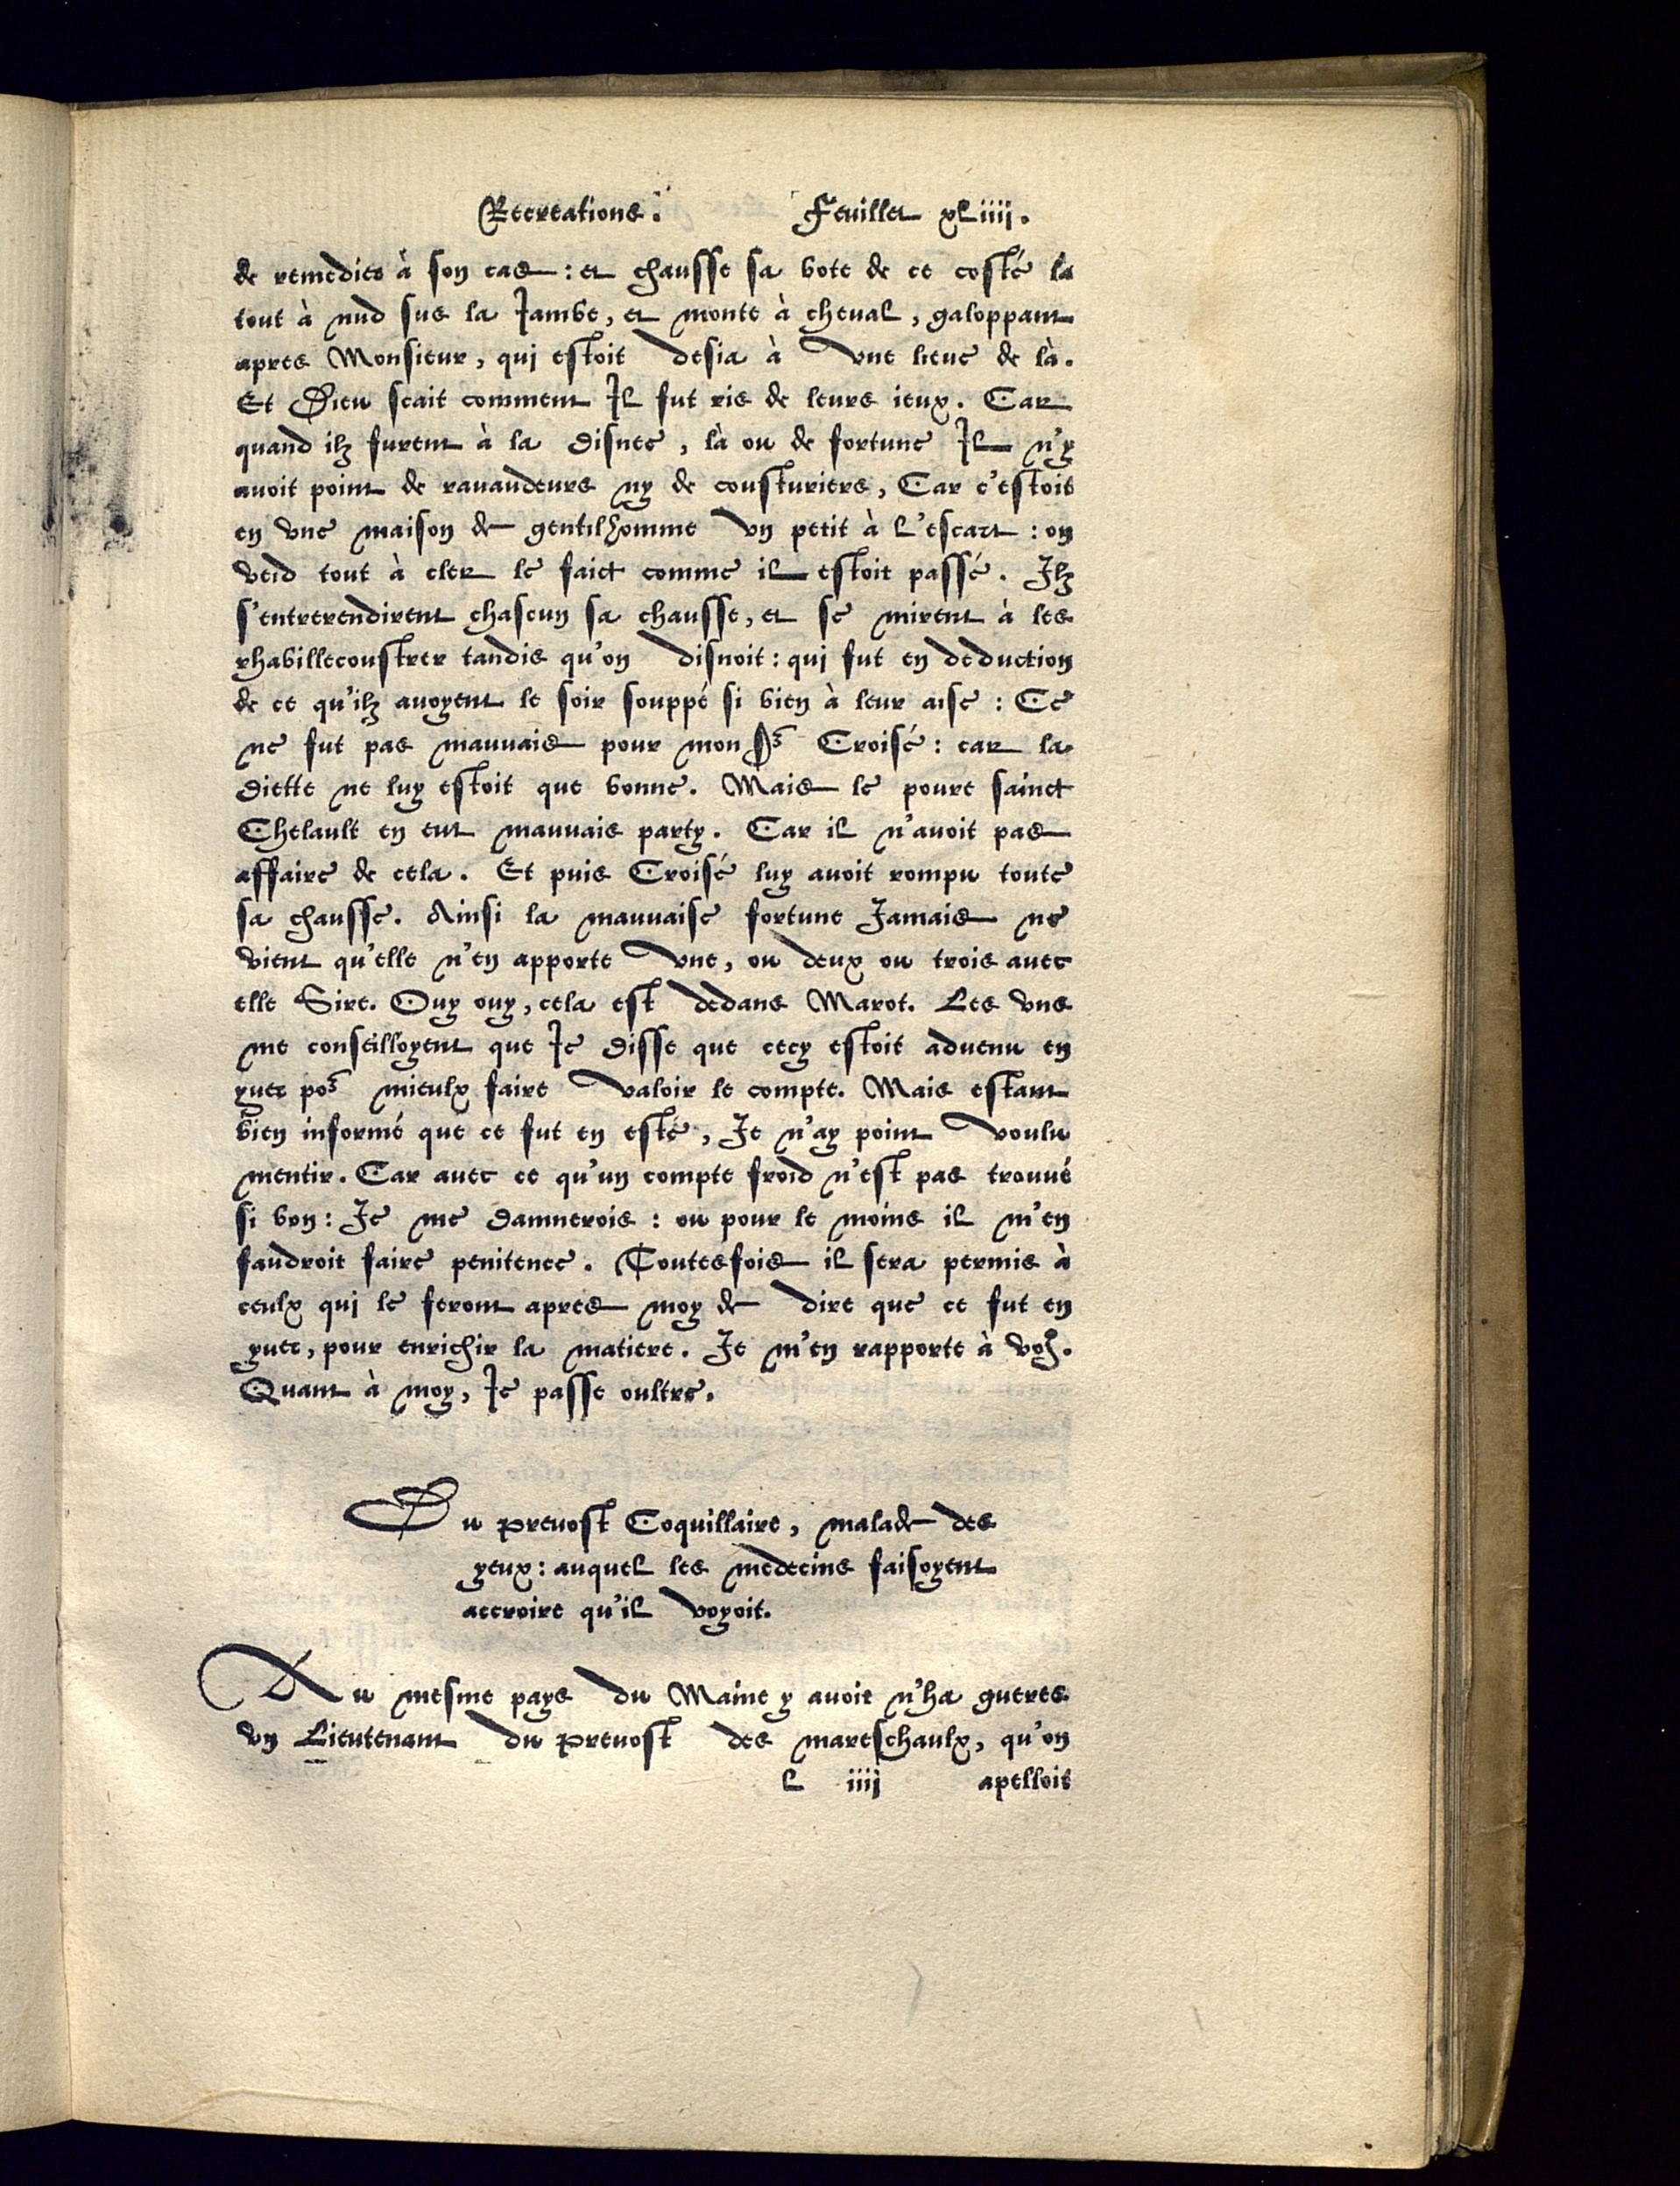 Recreations. Feuillet xliiij.
de remedier à son cas : et chausse sa bote de ce costé là
tout à nud sus la Jambe, et monte à cheval, galoppant
apres Monsieur, qui estoit desia à vne lieue de là.
Et Dieu scait comment Il fut ris de leurs ieux. Car
quand ilz furent à la disnee, là ou de fortune Il n'y
auoit point de rauaudeurs ny de cousturiers, Car c'estoit
en vne maison de gentilhomme vn petit à l'escart : on
veid tout à cler le faict comme il estoit passé. Ilz
s'entrerendirent chascun sa chausse, et se mirent à les
rhabillecoustrer tandis qu'on disnoit : qui fut en deduction
de ce qu'ilz auoyent le soir souppé si bien à leur aise : Ce
ne fut pas mauuais pour mon Sʳ Croisé : car la
diette ne luy estoit que bonne. Mais le poure sainct
Chelault en eut mauuais party. Car il n'auoit pas
affaire de cela. Et puis Croisé luy auoit rompu toute
sa chausse. Ainsi la mauuaise fortune Jamais ne
vient qu'elle n'en apporte vne, ou deux ou trois auec
elle Sire. Ouy ouy, cela est dedans Marot. Les vns
me conseilloyent que Je disse que cecy estoit aduenu en
yuer poʳ mieulx faire valoir le compte. Mais estant
bien informé que ce fut en esté, Je n'ay point voulu
mentir. Car auec ce qu'un compte froid n'est pas trouué
si bon : Je me damnerois : ou pour le moins il m'en
faudroit faire penitence. Toutesfois il sera permis à
ceulx qui le feront apres moy de dire que ce fut en
yuer, pour enrichir la matiere. Je m'en rapporte à voꝰ.
Quant à moy, Je passe oultre.
Du preuost Coquillaire, malade des
yeux : auquel les medecins faisoyent
accroire qu'il voyoit.
Au mesme pays du Maine y auoit n'ha gueres
vn Lieutenant du preuost des mareschaulx, qu'on
l iiij apelloit